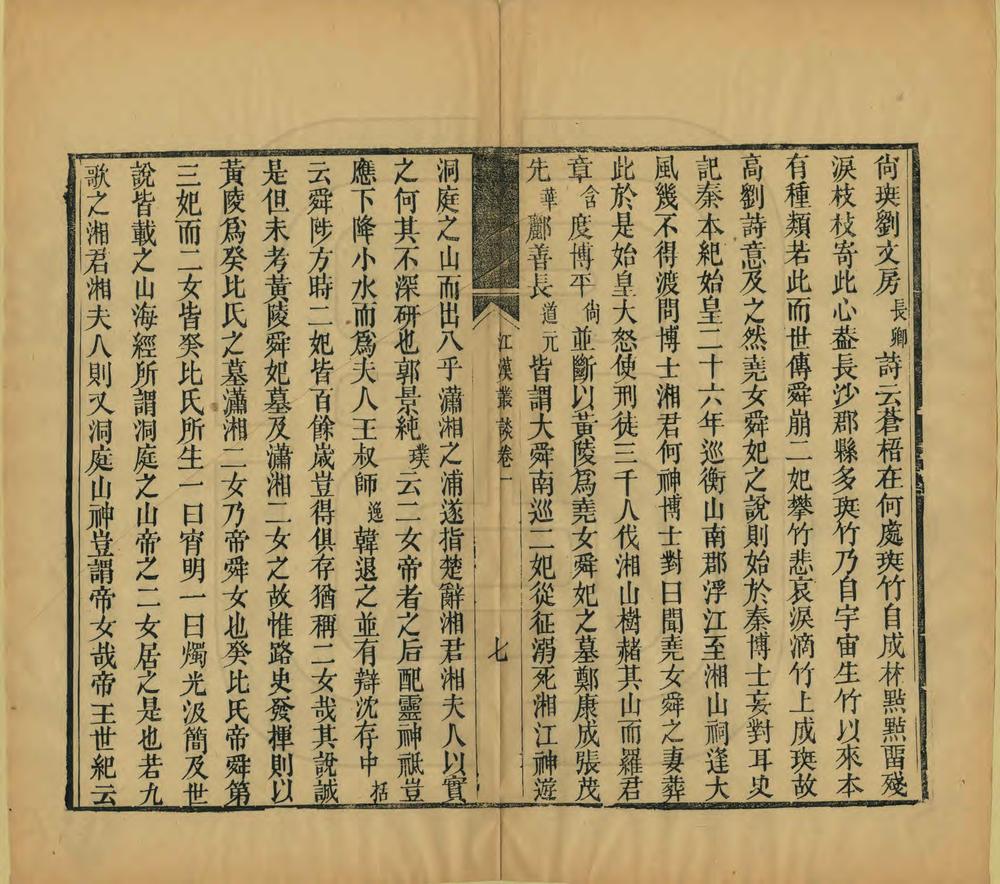 尙斑劉文房長卿詩云蒼梧在何處斑竹自成林點點畱殘
淚枝枝寄此心葢長沙郡縣多斑竹乃自宇宙生竹以來本
有種類若此而世傳舜崩二妃攀竹悲哀淚滴竹上成斑故
高劉詩意及之然堯女舜妃之說則始於秦博士妄對耳史
記秦本紀始皇二十六年巡衡山南郡浮江至湘山祠逢大
風幾不得渡問博士湘君何神博士對曰聞堯女舜之妻葬
此於是始皇大怒使刑徒三千人伐湘山樹赭其山而羅君
章含度博平尙並斷以黃陵爲堯女舜妃之墓鄭康成張茂
先華酈善長道元皆謂大舜南巡二妃從征溺死湘江神遊
江漢叢談卷一
七
洞庭之山而出入乎瀟湘之浦遂指楚辭湘君湘夫人以實
之何其不深研也郭景純璞云二女帝者之后配靈神祗豈
應下降小水而爲夫人王叔師逸韓退之並有辯沈存中括
云舜陟方時二妃皆百餘歲豈得俱存猶稱二女哉其說誠
是但未考黃陵舜妃墓及瀟湘二女之故惟路史發揮則以
黃陵爲癸比氏之墓瀟湘二女乃帝舜女也癸比氏帝舜第
三妃而二女皆癸比氏所生一曰宵明一曰燭光汲簡及世
說皆載之山海經所謂洞庭之山帝之二女居之是也若九
歌之湘君湘夫人則又洞庭山神豈謂帝女哉帝王世紀云